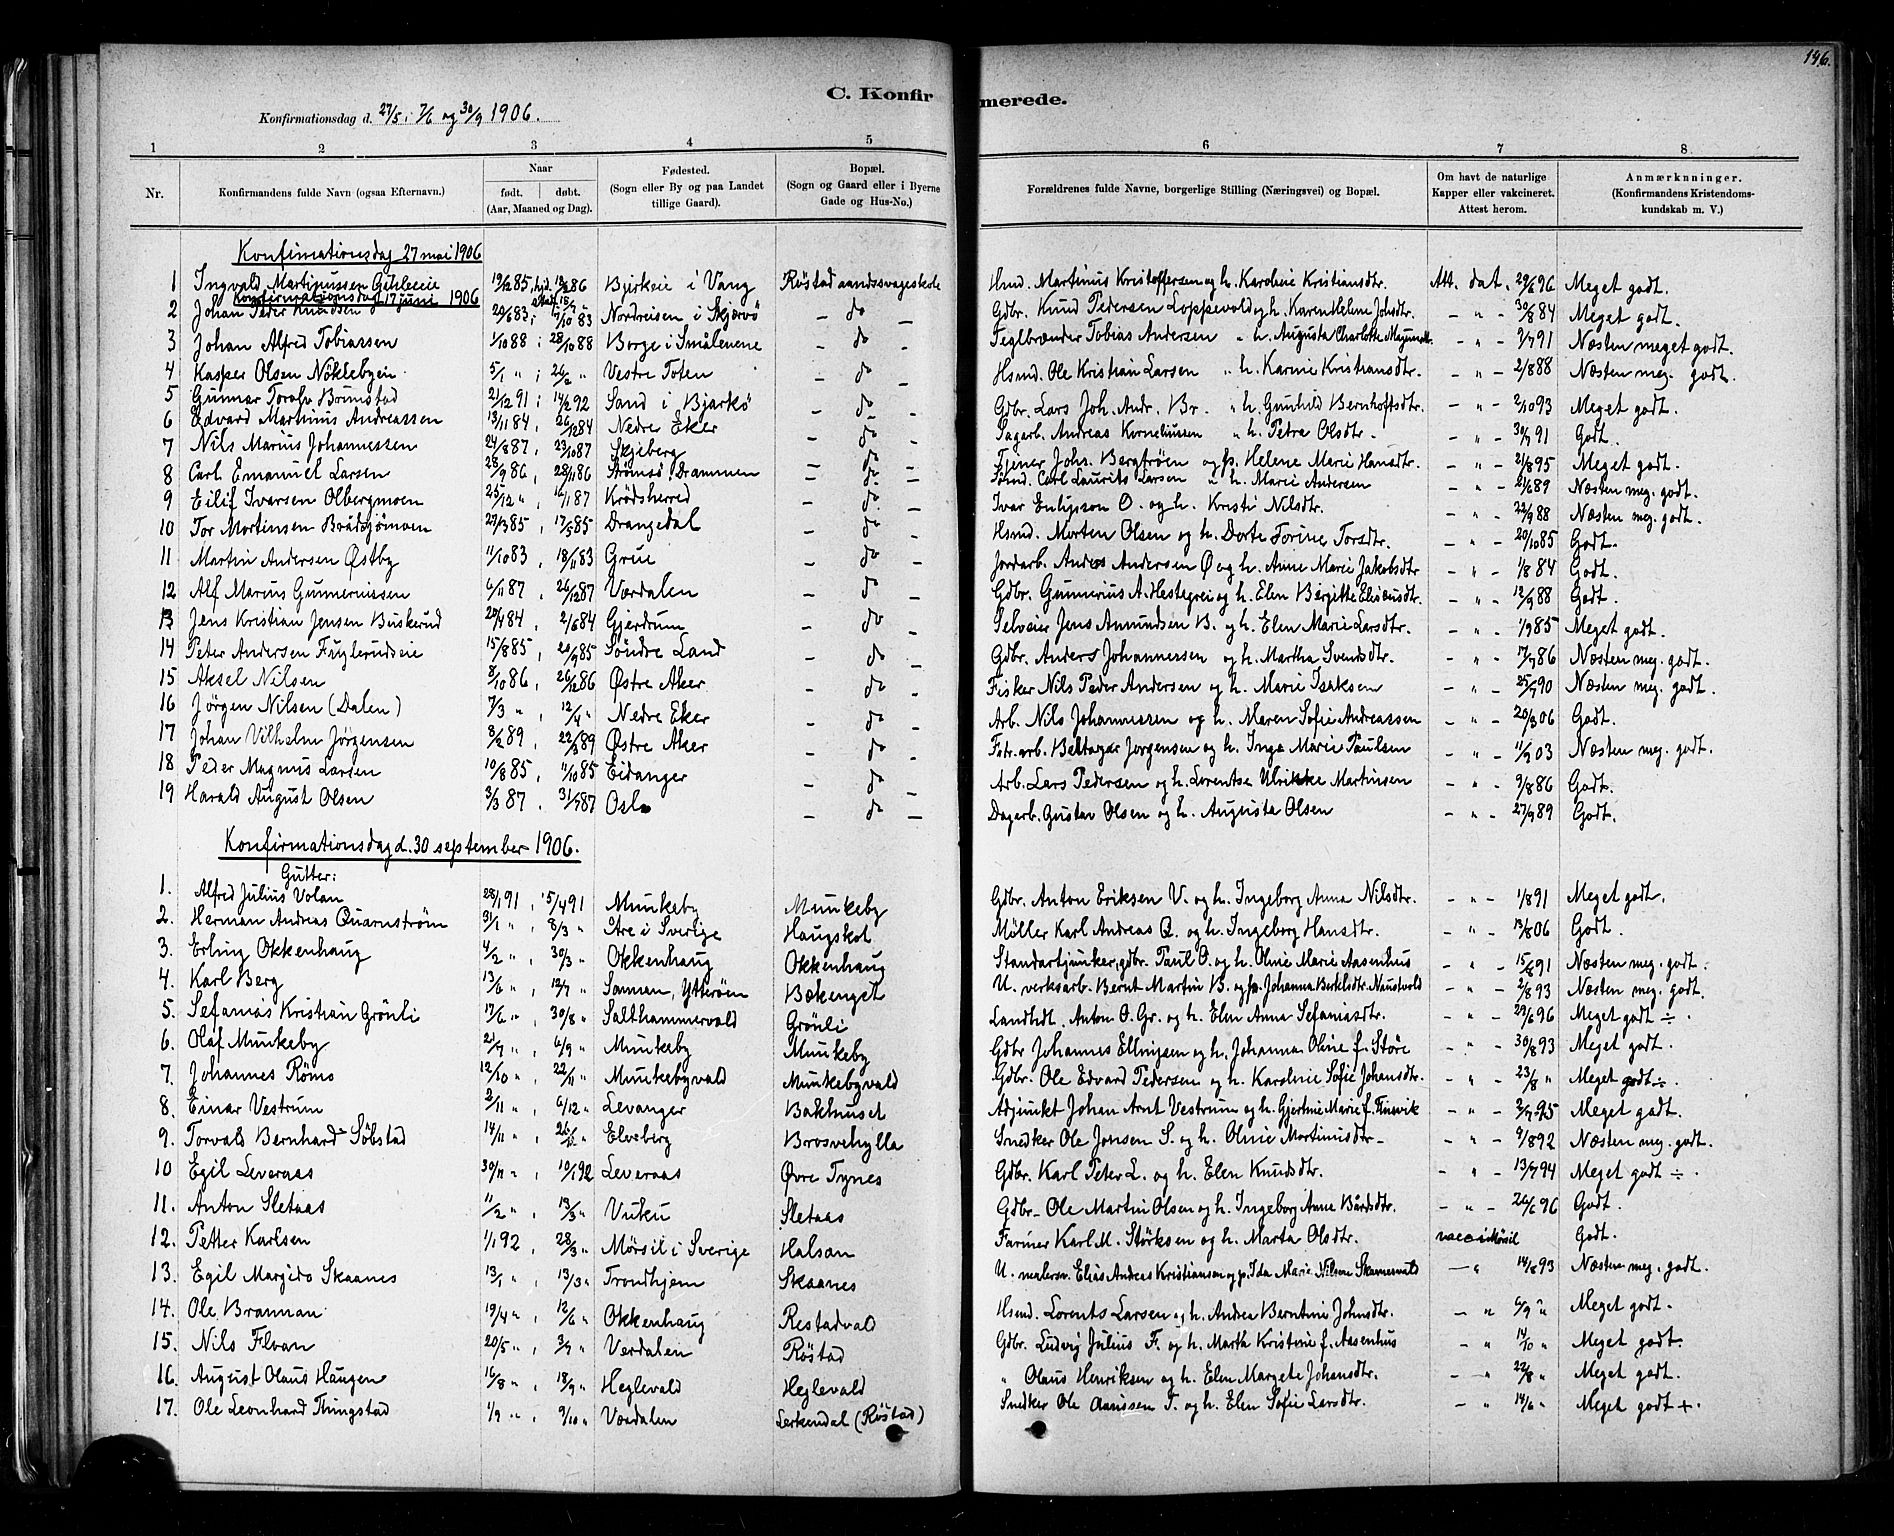 146.
C. Konfirmerede.
Konfirmationsdag d. 27/5, 17/6 og 30/9 1906.
1 2 3 4 5 6 7 8
Nr. Konfirmandens fulde Navn (ogsaa Efternavn.) Naar født. døbt. (Aar, Maaned og Dag). Fødested. (Sogn eller By og paa Landet tillige Gaard). Bopæl. (Sogn og Gaard eller i Byerne Gade og Hus-No.) Forældrenes fulde Navne, borgerlige Stilling (Næringsvei) og Bopæl. Om havt de naturlige Kapper eller vakcineret. Attest herom. Anmærkninger. (Konfirmandens Kristendomskundskab m. V.)
Konfirmationsdag 27 mai 1906
1 Ingvald Martinussen 19/12 85, Bjirkeie i Vang Røstad aandssvageskole Hsmd. Martinus Kristoffersen og h. Karoline Kristiansdtr. Att. dat. 29/6 96 Meget godt.
Konfirmationsdag 17 juni 1906
2 Johan Peder Knudsen 20/6 83; 7/10 83 Nordreisen i Skjervö - do - Gdbr. Knud Pedersen Loppevold og h. Karen Helene Johsdtr. - " - 30/8 84 Meget godt.
3 Johan Alfred Tobiassen 1/10 88; 28/10 88 Borge i Smålenene - do - Teglbrænder Tobias Andersen " h. Augusta Charlotte - " - 91 Næsten meget godt.
4 Kasper Olsen Nöklebyein 5/1 "; 26/2 " Vestre Toten - do - Hsmd. Ole Kristian Larsen " h. Karine Kristiansdtr. - " - 2/8 88 Næsten meg. godt.
5 Gunnar Toralv Brunstad 21/12 91; 14/2 92 Sand i Bjarkö - do - Gdbr. Lars Joh. Andr. Br. " h. Gunhild Bernhoffsdtr. - " - 2/10 93 Meget godt.
6 Edvard Martinius Andreassen 13/11 84, 26/12 84 Nedre Eker - do - Sagarb. Andreas Korneliussen " h. Petra Olsdtr. - " - 30/7 91 Godt.
7 Nils Marius Johannessen 24/8 87, 23/10 87 Skjeberg - do - Tjener Johs. Bergfröen og p. Helene Marie Hansdtr. - " - 21/8 95 Meget godt.
8 Carl Emanuel Larsen 28/9 86, 28/11 86 Strömsö, Drammen - do - Carl Laurits Larsen " h. Marie Andersen - " - 21/6 89 Næsten meg. godt.
9 Eilif Ivarsen Olbergmoen 25/12 ", 16/1 87 Krödsherred - do - Ivar Enligson O. og h. Kristi Nilsdtr. - " - 22/9 88 Næsten meg. godt.
10 Tor Mortinsen Brådsjömoen 27/3 85, 17/5 85 Drangedal - do - Hsmd. Morten Olsen og h. Dorte Torine Torsdtr. - " - 20/10 85 Godt.
11 Martin Andersen Østby 11/10 83, 18/11 83 Grue - do - Jordarb. Anders Andersen Ø og h. Anne Marie Jakobsdtr - " - 1/8 84 Godt.
12 Alf Marius Gunneriussen 6/11 87, 26/12 87 Værdalen - do - Gdbr. Gunnerius A. Hestegrei og h. Elen Bergitte Eliseusdtr. - " - 12/9 88 Godt.
13 Jens Kristian Jensen Buskerud 20/4 84, 2/6 84 Gjerdrum - do - Selveier Jens Amundsen B. og h. Elen Marie Larsdtr. - " - 1/9 85 Meget godt.
14 Peter Andersen Fuglerudseie 15/8 85, 20/9 85 Söndre Land - do - Gdbr. Anders Johannessen og h. Martha Svendsdtr. - " - 17/7 86 Næsten meg. godt.
15 Aksel Nilsen 8/10 86, 26/12 86 Østre Aker - do - Fisker Nils Peder Andersen og h. Marie Isaksen - " - 25/7 90 Næsten meg. godt.
16 Jörgen Nilsen (Dalen) 7/3 ", 12/4 " Nedre Eker - do - Arb. Nils Johannessen og h. Maren Sofie Andreassen - " - 20/3 06 Godt.
17 Johan Vilhelm Jörgensen 3/2 89, 22/3 89 Østre Aker - do - Fbr.arb. Baltazar Jörgensen og h. Inga Marie Paulsen - " - 11/9 03 Næsten meg. godt.
18 Peder Magnus Larsen 10/8 85, 11/10 85 Eidanger - do - Arb. Lars Pedersen og h. Lorentse Ulrikke Martinsen - " - 9/8 86 Godt.
19 Harald August Olsen 3/3 87, 31/7 87 Oslo - do - Dagarb. Gustav Olsen og h. Augusta Olsen - " - 27/9 89 Godt.
Konfirmationsdag d. 30 september 1906.
Gutter:
1. Alfred Julius Volan 28/1 91, 5/4 91 Munkeby Munkeby Gdbr. Anton Eriksen V. og h. Ingeborg Anna Nilsdtr. - " - 1/8 91 Meget godt.
2. Herman Andreas Quarnström 31/1 ", 8/3 " Åre i Sverige Haugskot Möller Karl Andreas Q. og h. Ingeborg Hansdtr. - " - 13/8 06 Godt.
3. Erling Okkenhaug 4/2 ", 30/3 " Okkenhaug Okkenhaug Standartjunker, gdbr. Paul O. og h. Oline Marie Aasenhus - " - 15/8 91 Næsten meg. godt.
4. Karl Berg 13/6 ", 12/7 " Saman, Ytterøen Bækenget U. verksarb. Bernt Martin B. og p. Johanna Naustvold - " - 2/8 93 Næsten meg. godt.
5. Sefanias Kristian Grönli 17/6 ", 30/8 " Salthammervald Grönli Landhdl. Anton O. Gr. og h. Elen Anna Sefaniasdtr. - " - 29/6 96 Meget godt ÷.
6. Olaf Munkeby 21/7 ", 6/9 " Munkeby Munkeby Gdbr Johannes Ellingsen og h. Johanna Oline f. Störe - " - 30/8 93 Meget godt.
7. Johannes Römo 12/10 ", 22/11 " Munkebyvald Munkebyvald Gdbr. Ole Edvard Pedersen og h. Karoline Sofie Johansdtr. - " - 23/8 " Meget godt ÷.
8. Einar Vestrum 2/11 ", 6/12 " Levanger Bakhuset Adjunkt Johan Arnt Vestrum og h. Gjertine Marie f. Finsvik - " - 2/7 95 Meget godt.
9. Torvald Bernhard Söbstad 14/11 ", 26/12 " Elveberg Brosvehylla Snedker Ole Jonsen S. og h. Oline Martinisdtr - " - 9/8 92 Næsten meg. godt.
10 Egil Leveraas 30/11 ", 10/1 92 Leveraas Øvre Tynes Gdbr. Karl Peter L. og h. Elen Knudsdtr. - " - 13/7 94 Meget godt ÷.
11. Anton Sletaas 11/2 ", 13/3 " Vuku Sletaas Gdbr. Ole Martin Olsen og h. Ingeborg Anna Bårdsdtr. - " - 26/6 96 Godt.
12. Petter Karlsen 1/1 92, 28/3 " Mörsil i Sverige Halsan Farmer Karl M. Störksen og h. Marta Olsdtr. vacc i Mörsil Godt.
13. Egil Margido Skaanes 13/1 ", 13/3 " Trondhjem Skaanes U. malersv. Elias Andreas Kristiansen og p. Ida Marie Nilsen Skaanesvald - " 14/8 93 Næsten meg. godt.
14. Ole Brannan 19/4 ", 12/6 " Okkenhaug Restadvald Hsmd. Lorents Larsen og h. Andrea Berntine Johnsdtr. - " 6/9 " Meget godt.
15. Nils Flvan 20/5 ", 3/7 " Verdalen Røstad Gdbr. Ludvig Julius F. og h. Marta Kristine f. Aasenhus - " 14/10 " Meget godt.
16. August Olaus Haugen 16/8 ", 18/9 " Heglevald Heglevald " Olaus Henriksen og h. Elen Margrete Johansdtr. - " 22/8 " Meget godt.
17. Ole Leonhard Thingstad 1/9 ", 9/10 " Værdalen Lerkendal (Røstad) Snedker Ole Aanssen T. og h. Elen Sofie Larsdtr. - " 14/6 " Meget godt +.